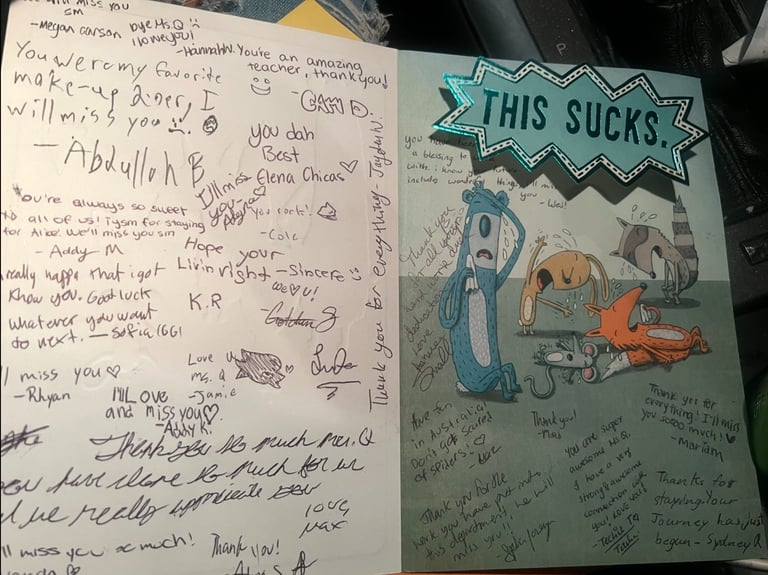 will miss you
sm
-Megan carson
bye Ms.Q
I love you!
-HannahW.
You're an amazing
teacher, thank you!
You were my favorite
make-up doer, I
will miss you
- Abdulloh B
you dah
Best
I'll miss
you
Elena Chicas
You're always so sweet
to all of us! Tysm for staying
for Alice. We'll miss you sm
- Addy M
You rock!
- Cole
Hope your
Livin right - Sincere
we ♡ u!
really happy that i got
know you. Good luck
whatever you want
do next. - Sofia IGGI
K.R
Thank you for everything - Jayden N.
I'll miss you ♡
- Rhyan
Love u
ms. Q
- Jamie
I'll Love
and miss you ♡
- Addy K.
Thank you so much Mrs. Q
you have done so much for us
and we really appreciate you
love,
Max
I'll miss you so much!
Thank you!
THIS SUCKS.
you have been
a blessing to
with. i know
includes wondrous things.
- Wes!
Thank you
for all your
hard work and
dedication
Love
Have fun
in Australia!
Don't get scared
of spiders! ♡
Thank you!
Thank you for
everything! I'll miss
you soooo much! ♡
- Mariam
You are super
awesome Ms Q.
I have a very
strong awesome
connection with
you! Love ya!!
- Techie TQ
Thank you for the
work you have put into
this department, we will
miss you!!
Thanks for
staying. Your
Journey has just
began - Sydney R
P